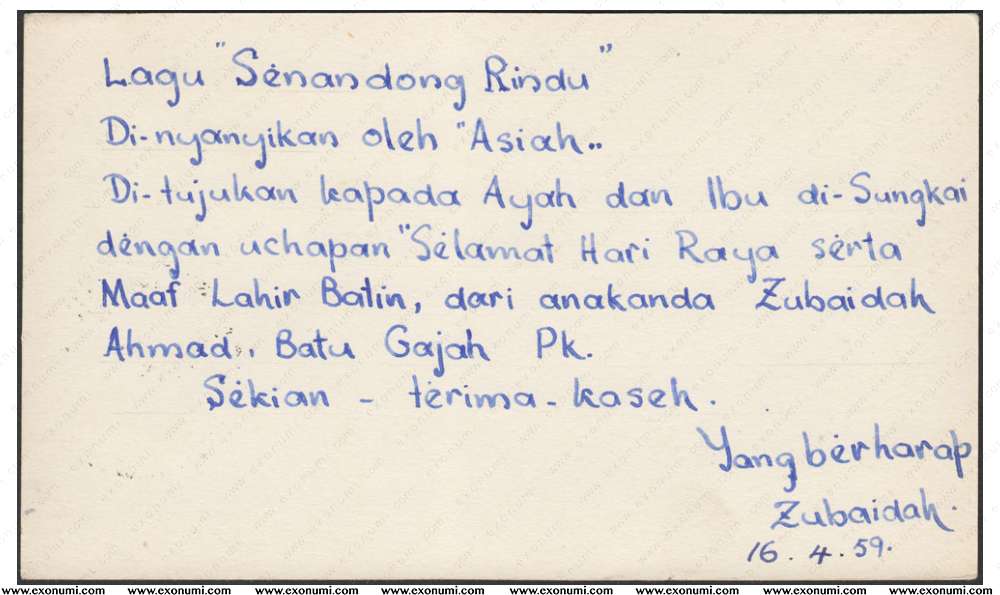 Lagu "Sėnandong Rindu"
Di-nyanyikan oleh "Asiah"
Di-tujukan kapada Ayah dan Ibu di-Sungkai
dėngan uchapan "Sėlamat Hari Raya sėrta
Maaf Lahir Batin, dari anakanda Zubaidah
Ahmad, Batu Gajah Pk.
Sėkian - tėrima-kaseh.
Yang bėrharap
Zubaidah.
16.4.59.
www.exonumi.com www.exonumi.com www.exonumi.com www.exonumi.com www.exonumi.com www.exonumi.com www.exonumi.com www.exonumi.com